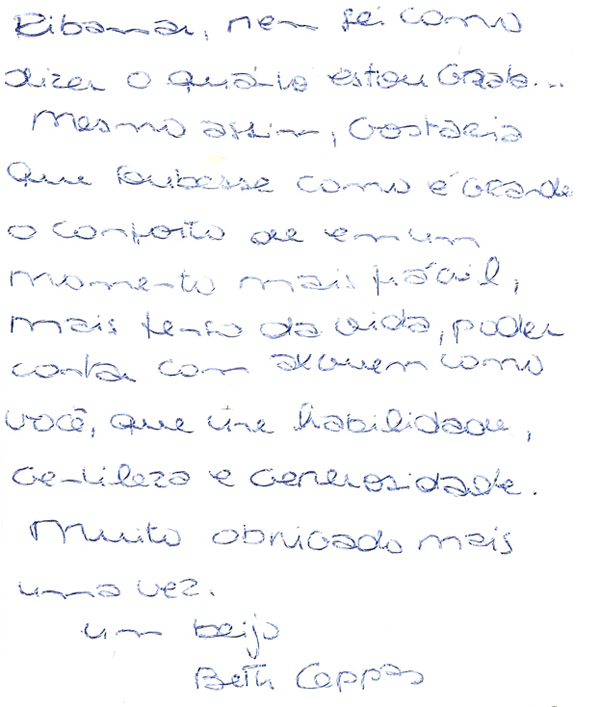 Ribamar, nem sei como
dizer o quanto estou grata...
Mesmo assim, gostaria
que soubesse como é grande
o conforto de em um
momento mais frágil,
mais tenso da vida, poder
contar com alguém como
você, que une habilidade,
gentileza e generosidade.
Muito obrigado mais
uma vez.
um beijo
Beth